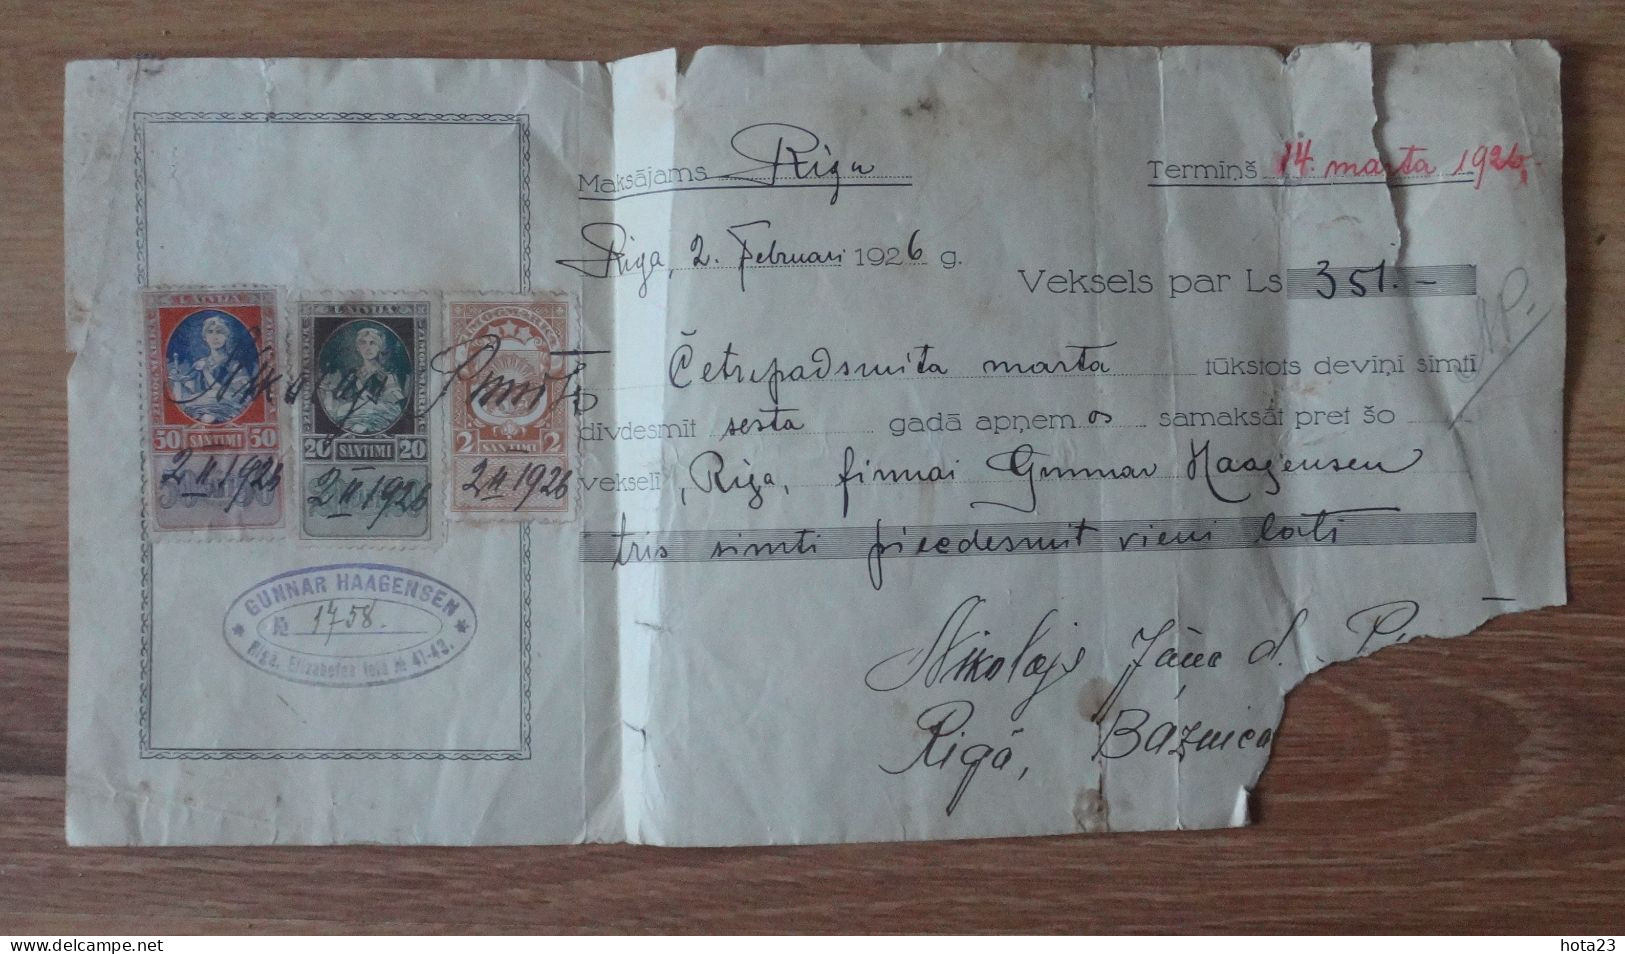 Maksājams Rīga
Termiņš 14. marta 1926.
Rīga, 2. Februari 1926 g.
Veksels par Ls 351.-
Četrpadsmita marta tūkstots deviņi simti
dīvdesmit sesta gadā apņemos samaksāt pret šo
vekseli, Rīga, firmai Gunnar Haagensen
trīs simti piecdesmit vieni lati
Nikolajs Jāņa d.
Rīgā, Baznica
LATVIJA
50 SANTIMI 50
2 II 1926
LATVIJA
20 SANTIMI 20
2 II 1926
2 SANTIMI 2
2 II 1926
Nikolajs
GUNNAR HAAGENSEN
№ 1758.
Rīgā, Elizabetes ielā № 41-43.
delcampe.net
hota23